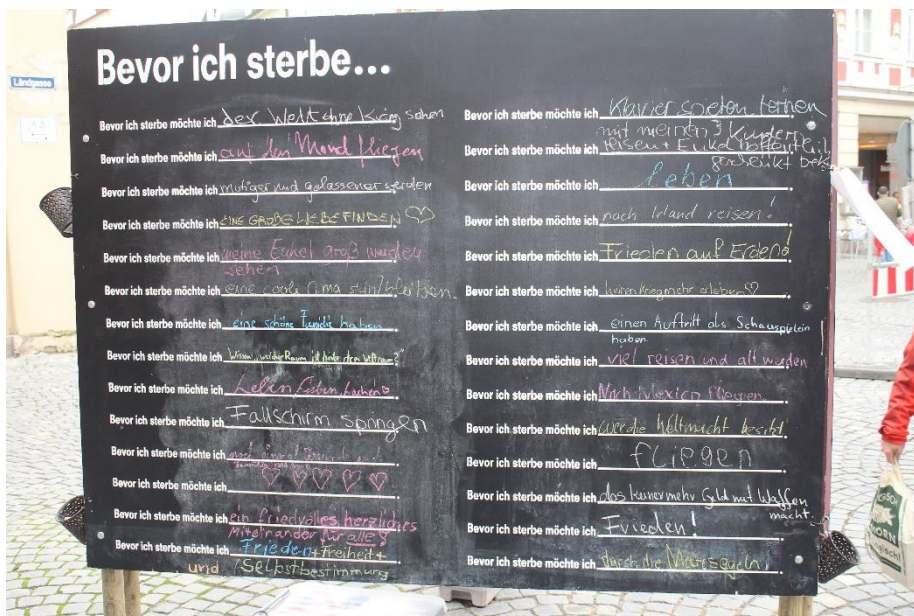 Ländgasse
Bevor ich sterbe...
Bevor ich sterbe möchte ich der Welt ohne Krieg sehen
Bevor ich sterbe möchte ich auf den Mond fliegen
Bevor ich sterbe möchte ich mutiger und gelassener werden
Bevor ich sterbe möchte ich EINE GROßE LIEBE FINDEN
Bevor ich sterbe möchte ich meine Enkel groß werden
sehen
Bevor ich sterbe möchte ich eine coole Oma sein/bleiben.
Bevor ich sterbe möchte ich eine schöne Familie haben
Bevor ich sterbe möchte ich Wissen, welcher Raum ist hinter dem Weltraum?"
Bevor ich sterbe möchte ich Leben, Lieben, Lachen
Bevor ich sterbe möchte ich Fallschirm springen
Bevor ich sterbe möchte ich noch einmal
Bevor ich sterbe möchte ich
Bevor ich sterbe möchte ich ein friedvolles herzliches
Miteinander für alle
Bevor ich sterbe möchte ich Frieden + Freiheit +
und Selbstbestimmung
Bevor ich sterbe möchte ich Klavier spielen lernen
Bevor ich sterbe möchte ich mit meinen 3 Kindern
reisen + Enkel hoffentlich
geschenkt bek
Bevor ich sterbe möchte ich leben
Bevor ich sterbe möchte ich nach Irland reisen!
Bevor ich sterbe möchte ich Frieden auf Erden!
Bevor ich sterbe möchte ich keinen Krieg mehr erleben
Bevor ich sterbe möchte ich einen Auftritt als Schauspielein
haben
Bevor ich sterbe möchte ich viel reisen und alt werden
Bevor ich sterbe möchte ich Nach Mexico fliegen
Bevor ich sterbe möchte ich wer die Weltmacht besitzt
Bevor ich sterbe möchte ich fliegen
Bevor ich sterbe möchte ich das keiner mehr Geld mit Waffen
macht
Bevor ich sterbe möchte ich Frieden!
Bevor ich sterbe möchte ich durch die Meere segeln